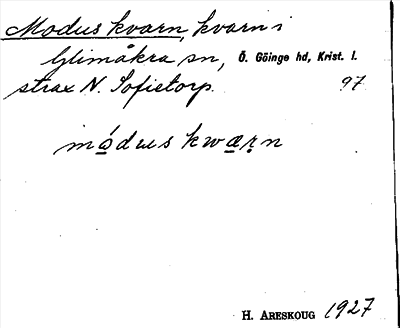 Modus kvarn, kvarn i
Glimåkra sn, Ö. Göinge hd, Krist. l.
strax N. Sofietorp. 97
mǫ́dɯs kwæ̠ṛn
H. ARESKOUG 1927